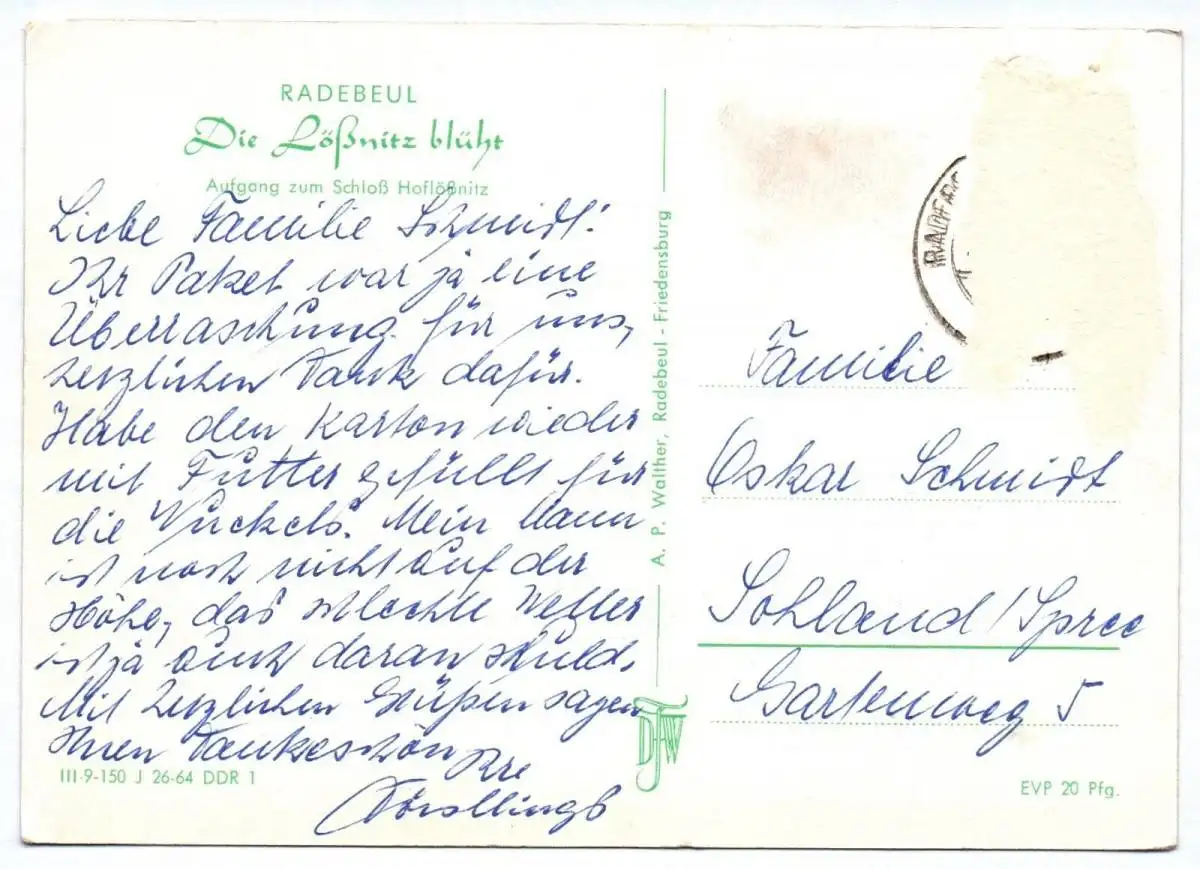 RADEBEUL
Die Lößnitz blüht
Aufgang zum Schloß Hoflößnitz
Liebe Familie Schmidt!
Ihr Paket war ja eine
Überraschung für uns,
herzlichen Dank dafür.
Habe den Karton wieder
mit Futter gefüllt für
die Nuckels. Mein Mann
ist noch nicht auf der
Höhe, das schlechte Wetter
ist ja auch daran schuld.
Mit herzlichen Grüßen sagen
Ihnen Dankeschön
Ihre
III-9-150 J 26-64 DDR 1
A. P. Walther, Radebeul - Friedensburg
Familie
Oskar Schmidt
Sohland/Spree
Gartenweg 5
EVP 20 Pfg.